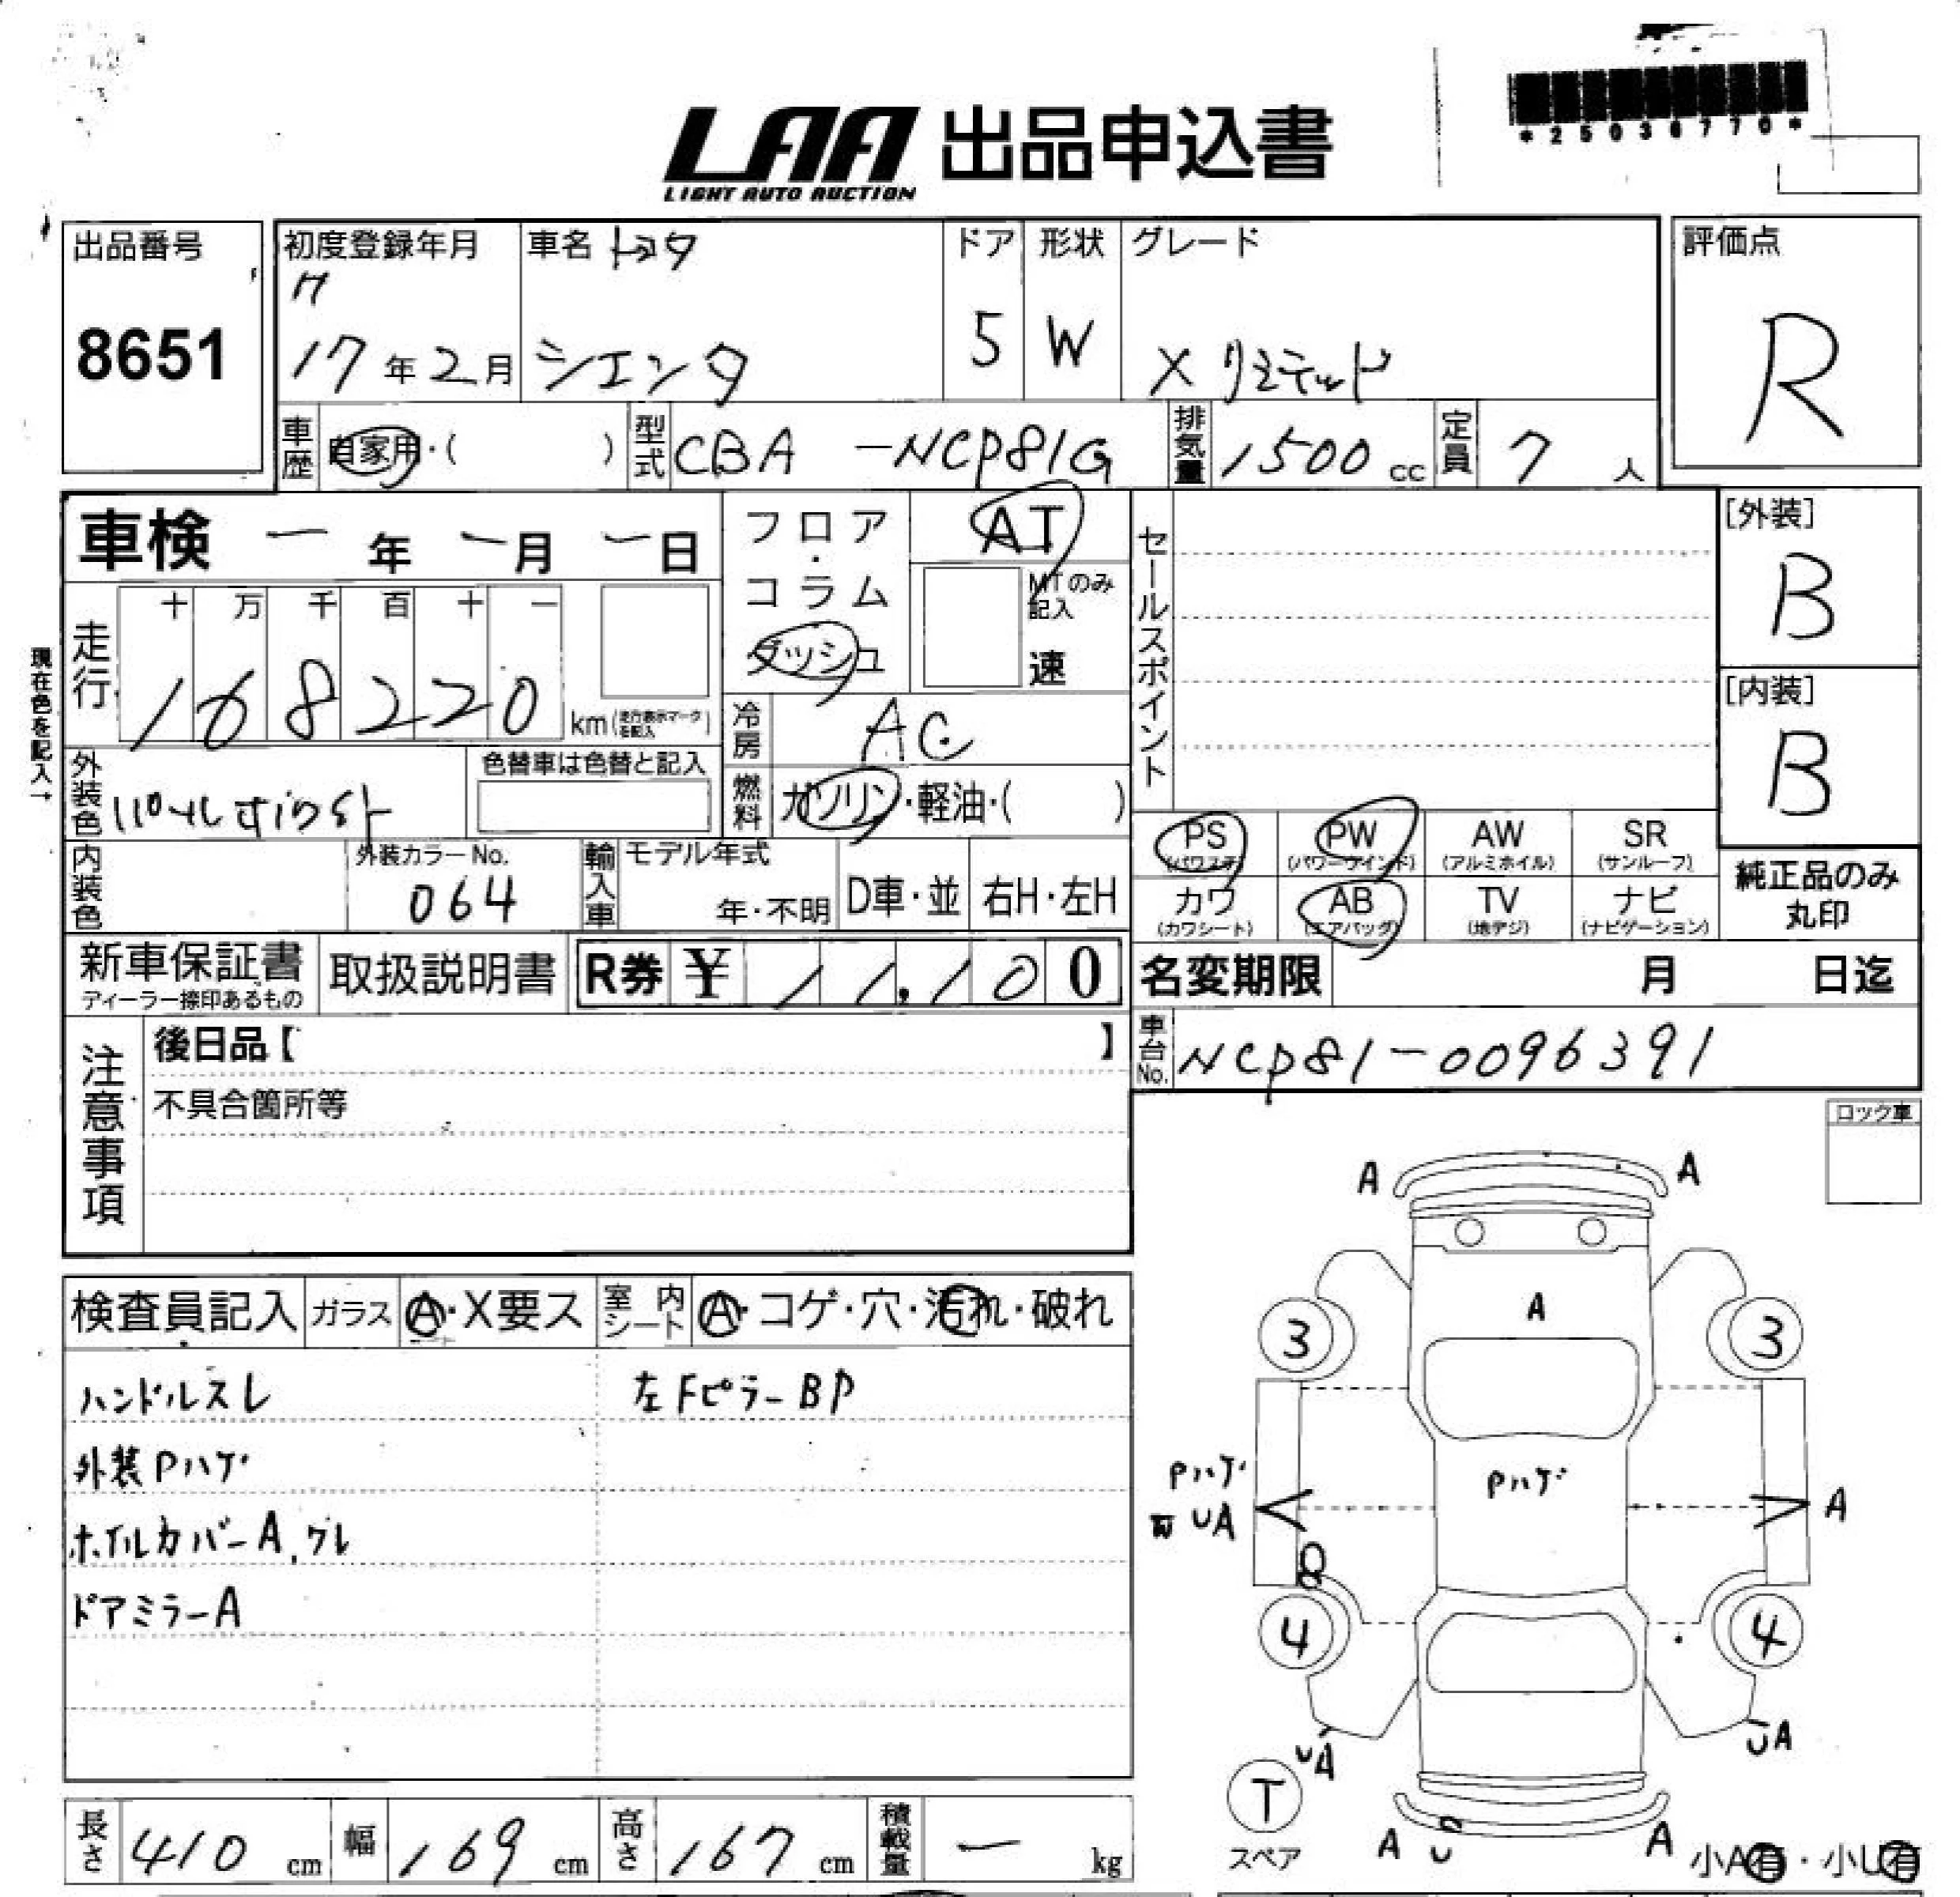 LAA 出品申込書
LIGHT AUTO AUCTION
*25036770*
出品番号
8651
初度登録年月
H
17年2月
車名 トヨタ
シエンタ
ドア
5
形状
W
グレード
X リミテッド
評価点
R
車歴
自家用・( )
型式
CBA -NCP81G
排気量
1500 cc
定員
7 人
車検 ー 年 ー 月 ー 日
フロア・コラム
ダッシュ
AT
MTのみ記入
速
セールスポイント
[外装]
B
[内装]
B
現在色を記入→
走行
十 万 千 百 十 一
168220 km (走行表示マークを記入)
冷房
AC
外装色
パールホワイト
色替車は色替と記入
燃料
ガソリン・軽油・( )
PS (パワステ)
PW (パワーウインド)
AW (アルミホイル)
SR (サンルーフ)
カワ (カワシート)
AB (エアバッグ)
TV (地デジ)
ナビ (ナビゲーション)
純正品のみ
丸印
内装色
外装カラーNo.
064
輸入車
モデル年式
年・不明
D車・並
右H・左H
新車保証書
ディーラー捺印あるもの
取扱説明書
R券 ¥ 11,100
名変期限 月 日迄
車台No. NCP81-0096391
注意事項
後日品【 】
不具合箇所等
ロック車
検査員記入
ガラス
A・X要ス
室内シート
A・コゲ・穴・汚れ・破れ
ハンドルスレ
左FピラーBP
外装Pハゲ
ホイルカバーA,ワレ
ドアミラーA
A A
A
3 3
Pハゲ
UA
Pハゲ
A
4 4
UA
UA
T
スペア
A U A
小A有・小U有
長さ 410 cm
幅 169 cm
高さ 167 cm
積載量 ー kg